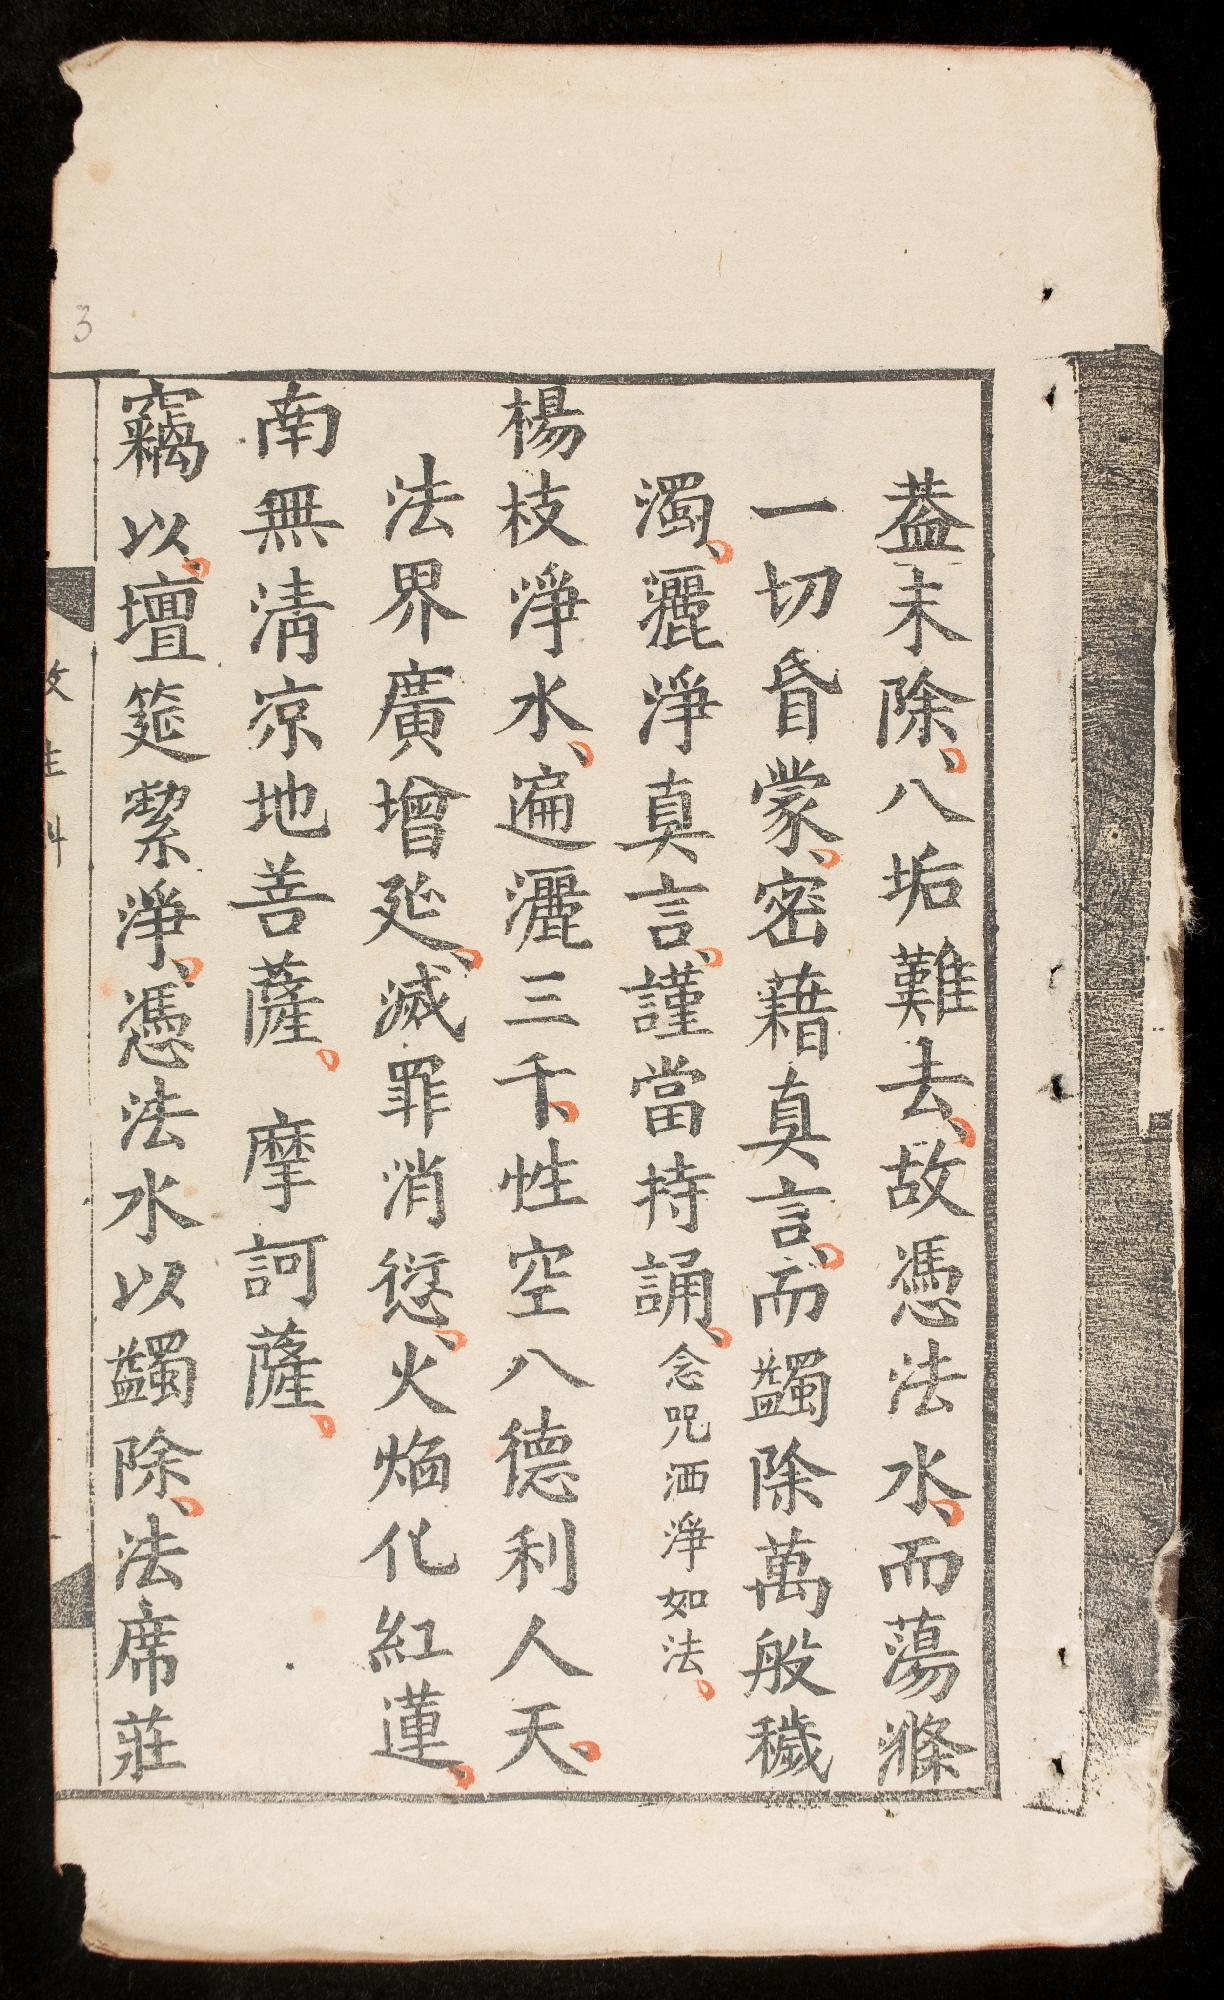 蓋未除、八垢難去、故憑法水、而蕩滌
一切昏蒙、密藉真言、而蠲除萬般穢
濁、灑淨真言、謹當持誦、念咒洒淨如法、
楊枝淨水、遍灑三千、性空八德利人天、
法界廣增延、滅罪消愆、火焰化紅蓮、
南無清凉地菩薩。摩訶薩。
竊以、壇筵潔淨、憑法水以蠲除、法席莊
3